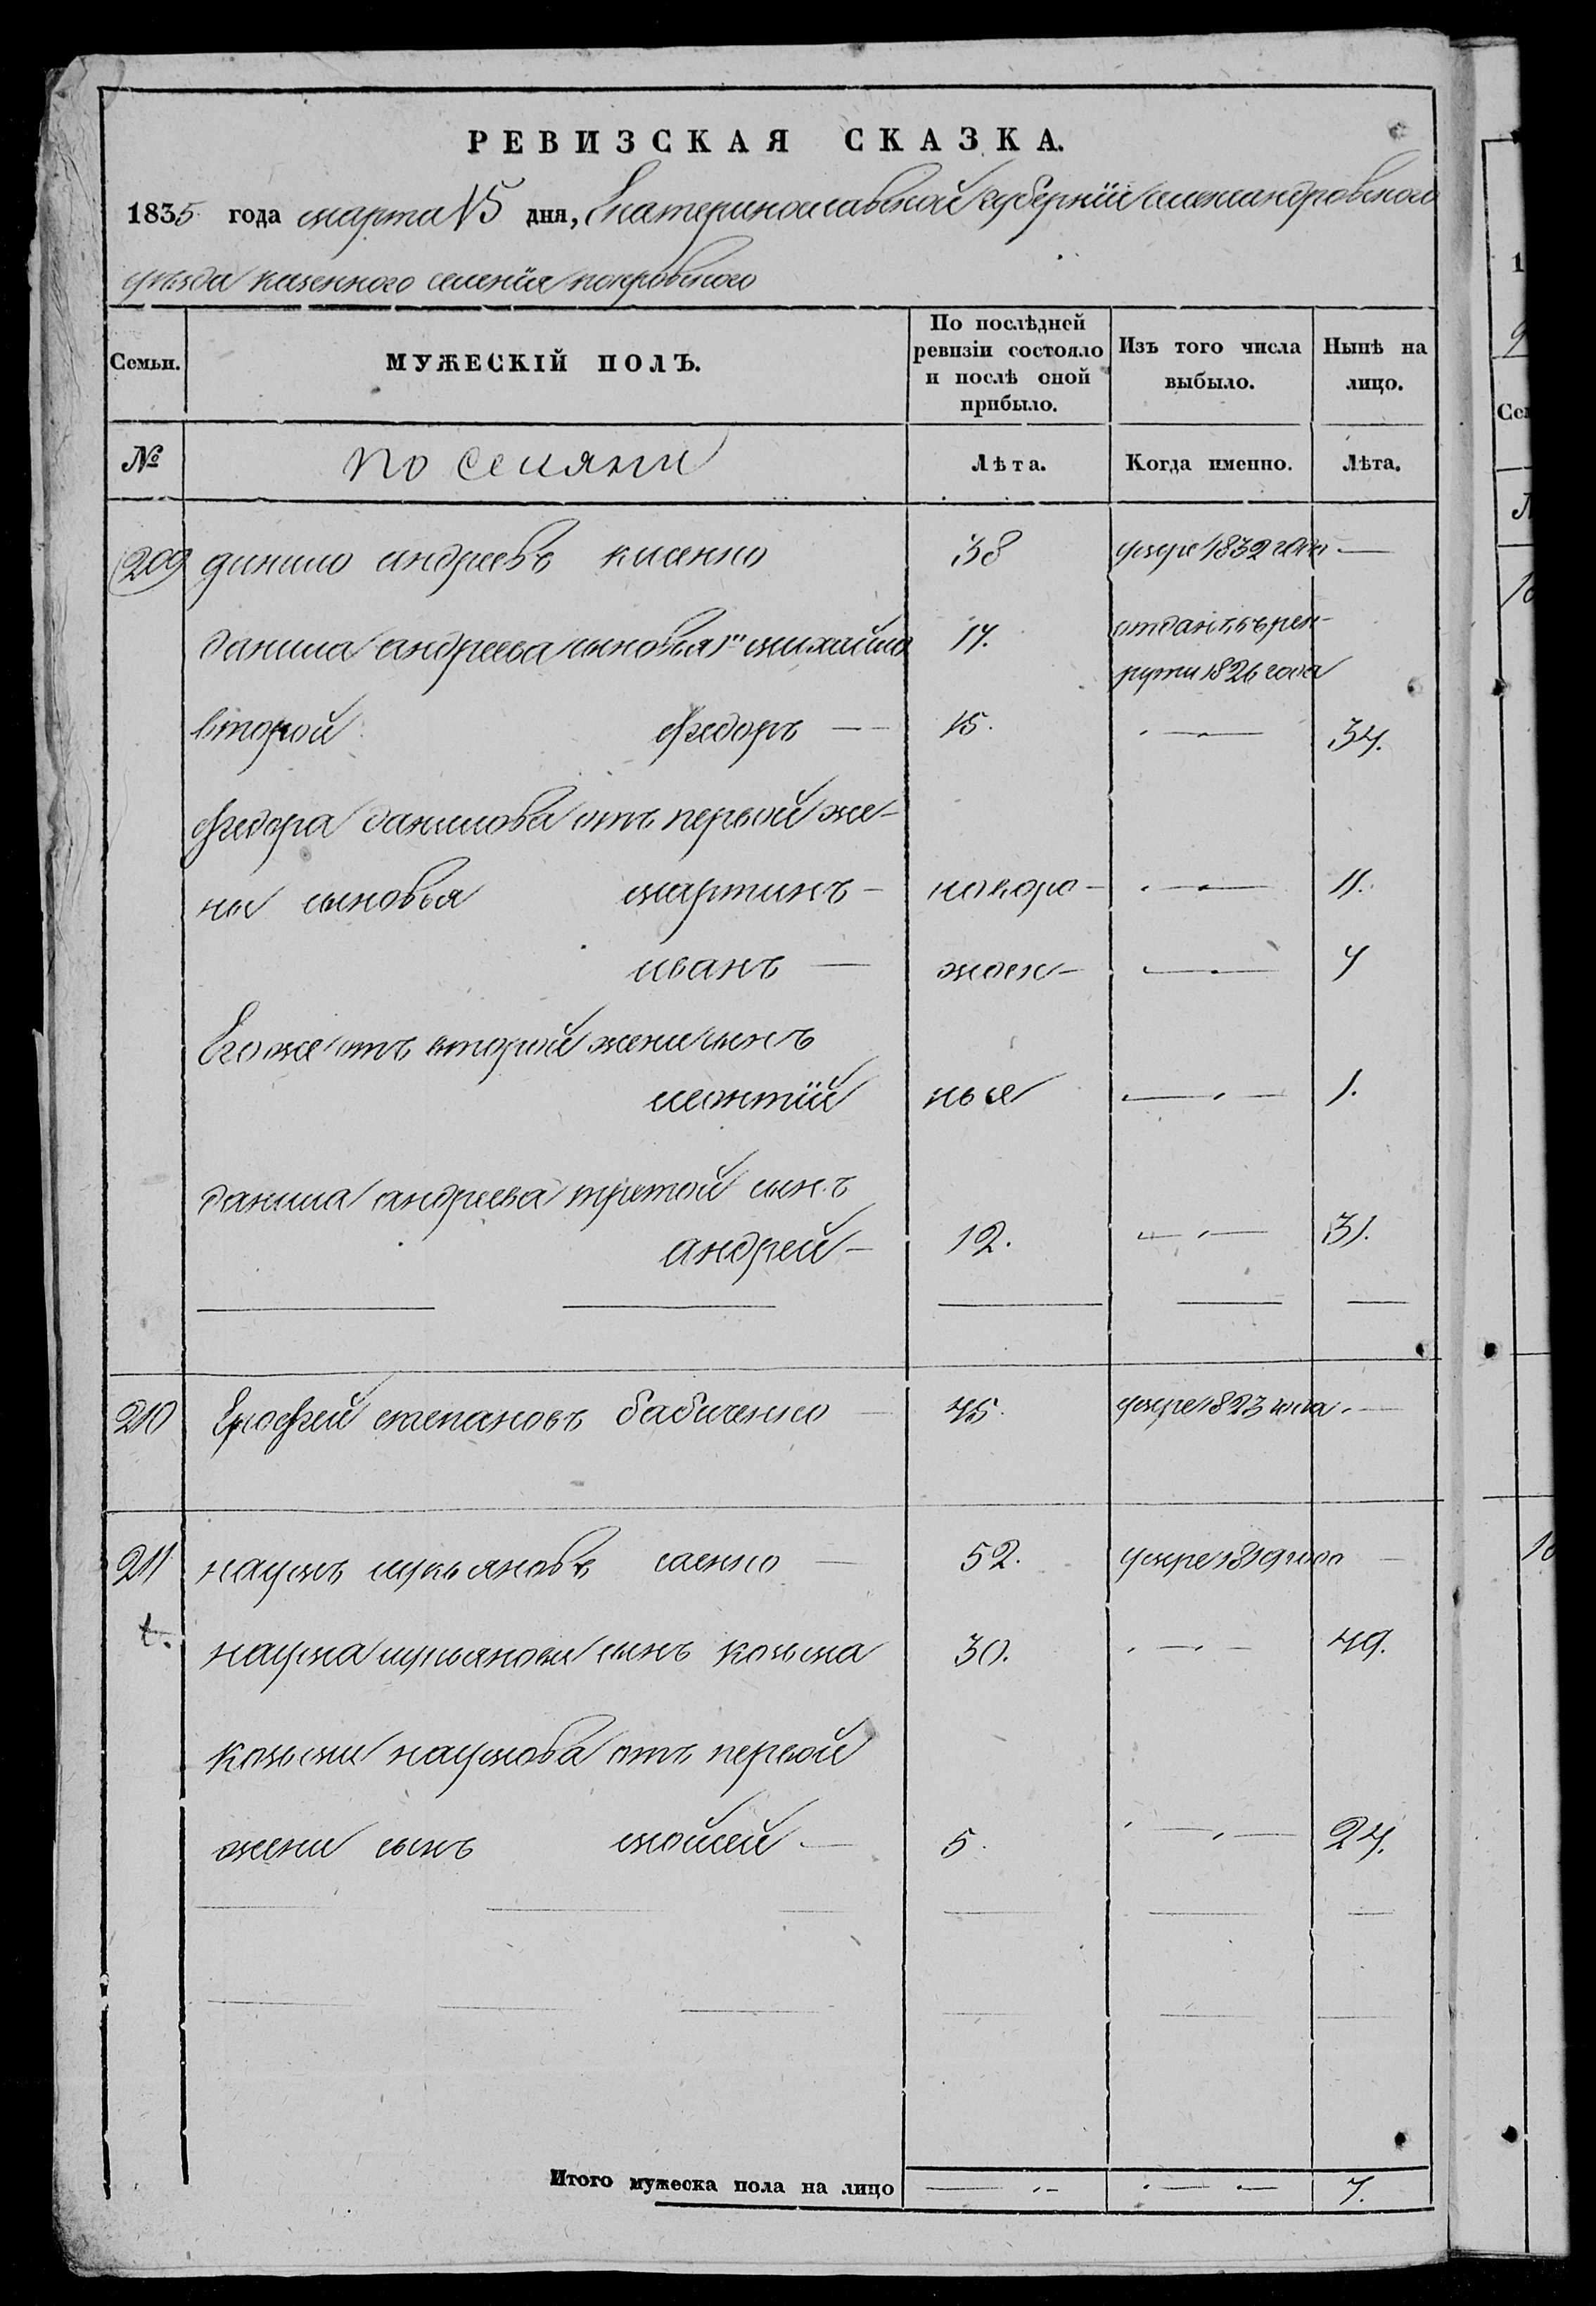 РЕВИЗСКАЯ СКАЗКА.
1835 года марта 15 дня, Екатеринославской губерніи александровского
уѣзда казенного селенія покровского
Семьи.
МУЖЕСКІЙ ПОЛЪ.
По послѣдней ревизіи состояло и послѣ оной прибыло.
Изъ того числа выбыло.
Нынѣ на лицо.
№
поселяни
Лѣта.
Когда именно.
Лѣта.
209 данило андреевъ 38 умре 1832 года —
данила андреева сыновья 1й михайло 17. отданъ въ рек-
рути 1826 года
второй федоръ — 15. 34.
федора данилова отъ первой же-
ны сыновья мартинъ — новоро- 11.
иванъ — жден- 4
Его же отъ второй жени сынъ
леонтій ныя 1.
данила андреева третой сынъ
андрей — 12. 31.
210 Ерофей степановъ бабиченко — 45. умре 1823 года —
211 наумъ лукьяновъ саенко — 52. умре 1819 года —
наума лукьянова сынъ козьма 30. 49.
козьми наумова отъ первой
жени сынъ мойсей — 5. 24.
Итого мужеска пола на лицо 7.